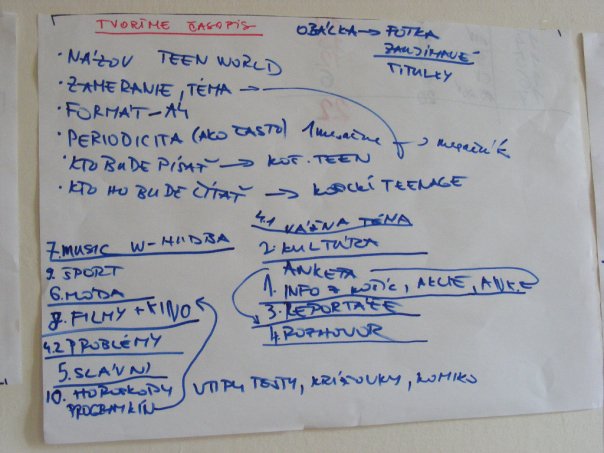 TVORÍME ČASOPIS
OBÁLKA → FOTKA
ZAUJÍMAVÉ
TITULKY
• NÁZOV TEEN WORLD
• ZAMERANIE, TÉMA →
• FORMÁT - A4
• PERIODICITA (AKO ČASTO) 1 mesačne → mesačník
• KTO BUDE PÍSAŤ → KOŠ. TEEN
• KTO HO BUDE ČÍTAŤ → TEENAGE
4.1 VÁŽNA TÉMA
7. MUSIC W-HUDBA
2. KULTÚRA
9. ŠPORT
ANKETA
6. MÓDA
1. INFO Z KOŠÍC, AKCIE, ANKE
8. FILMY + KINO
3. REPORTÁŽE
4.2 PROBLÉMY
4. ROZHOVOR
5. SLÁVNI
10. HOROSKOPY
VTIPY TESTY, KRÍŽOVKY, KOMIKS